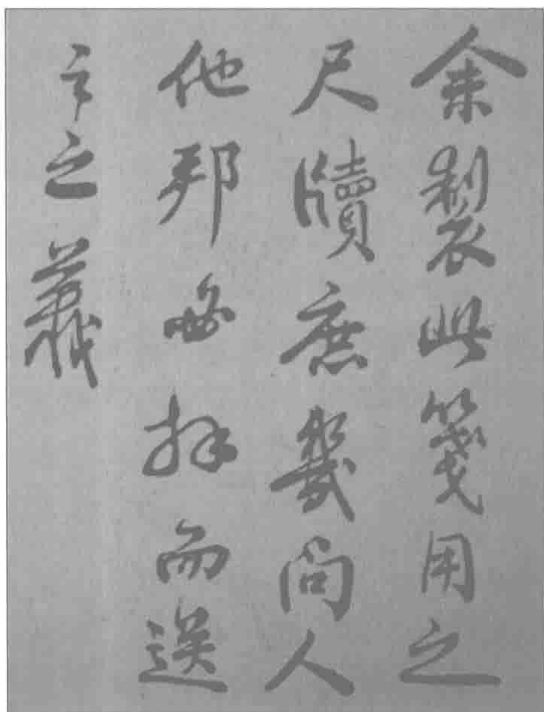 余製此箋用之
尺牘庶幾问人
他邦必拜而送
之之義